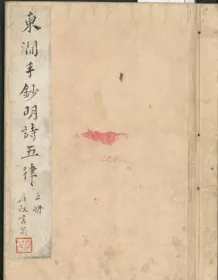 東澗手鈔明詩五律
上册